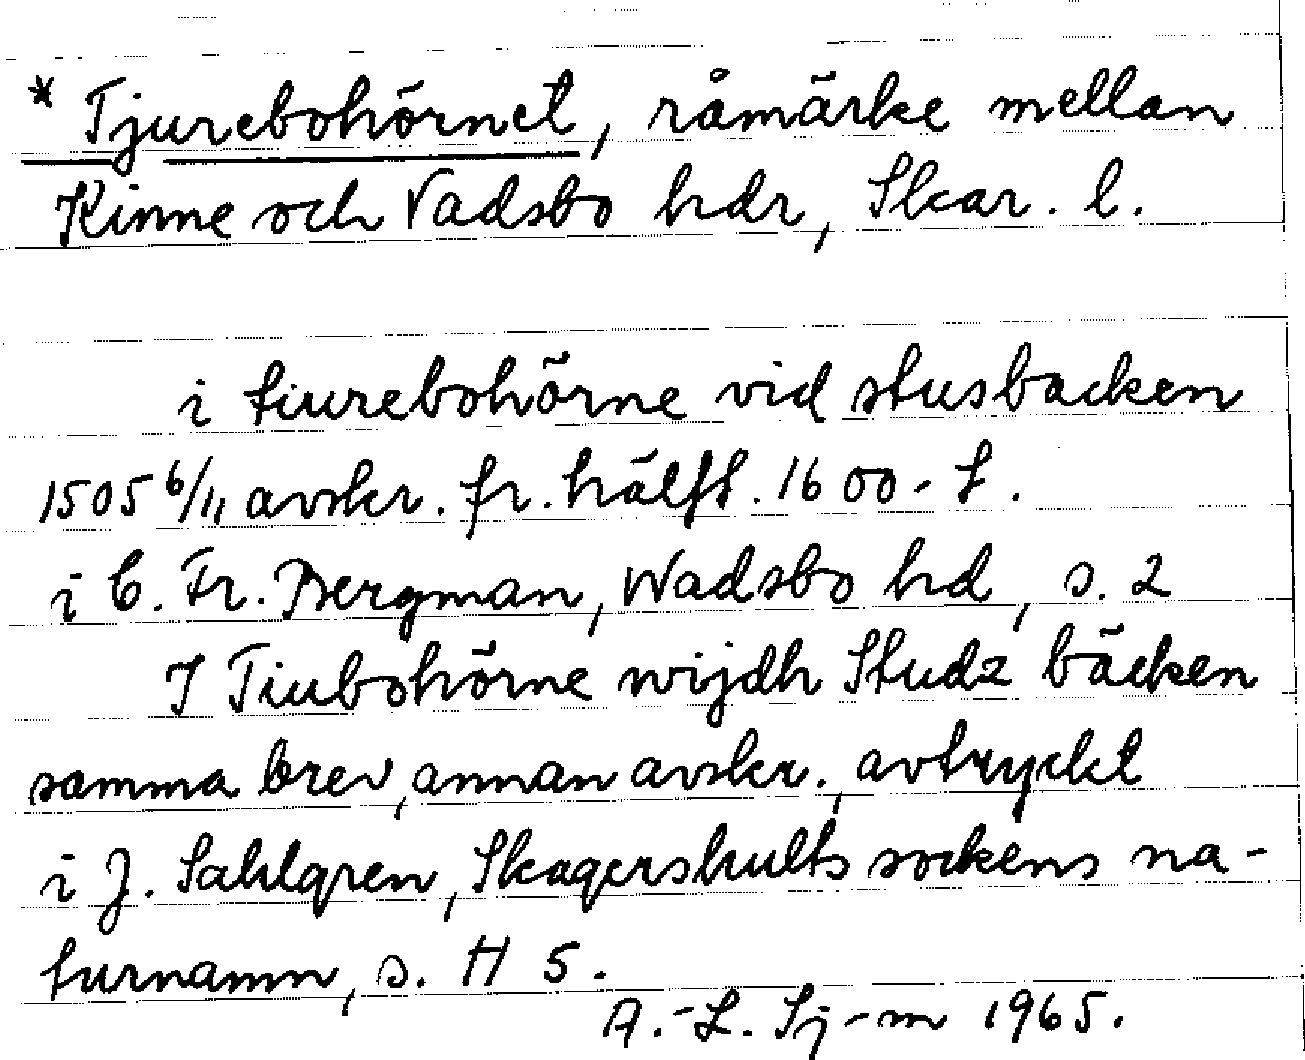 * Tjurebohörnet, råmärke mellan
Kinne och Vadsbo hdr, Skar. l.
i tiurebohörne vid stusbacken
1505 6/11 avskr. fr. hälft. 1600-t.
i C. Fr. Bergman, Wadsbo hd, s. 2
I Tiubohörne wijdh Studz bäcken
samma brev, annan avskr., avtryckt
i J. Sahlgren, Skagershults sockens na-
turnamn, s. H 5.
A.-L. Sj-m 1965.